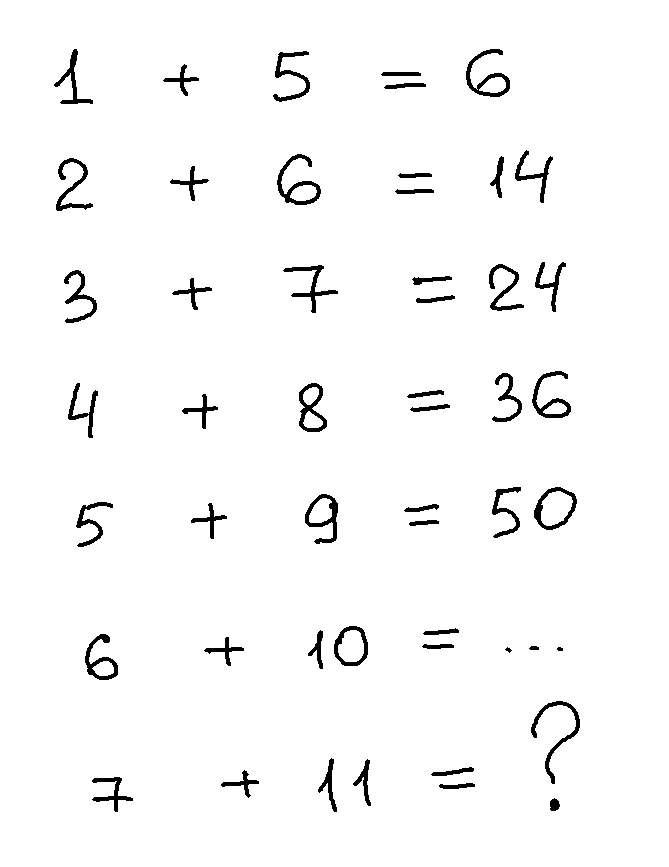 1 + 5 = 6
2 + 6 = 14
3 + 7 = 24
4 + 8 = 36
5 + 9 = 50
6 + 10 = ...
7 + 11 = ?